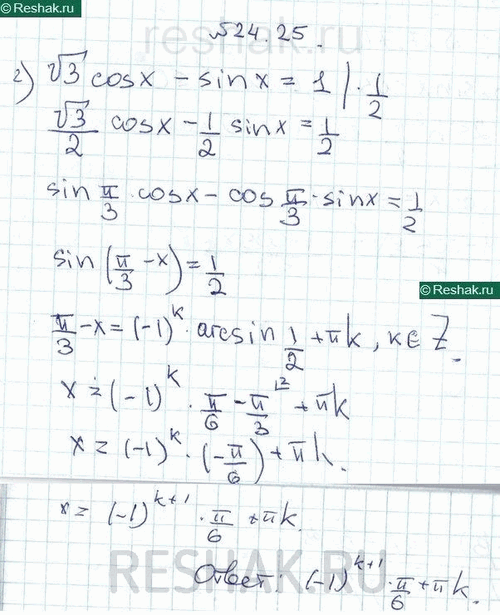 Reshak.ru
reshak.ru
№24.25.
г) √3 cosx - sinx = 1 | · 1/2
√3/2 cosx - 1/2 sinx = 1/2
sin π/3 · cosx - cos π/3 · sinx = 1/2
sin(π/3 - x) = 1/2
Reshak.ru
π/3 - x = (-1)^k · arcsin 1/2 + πk, k∈Z.
x = (-1)^k · π/6 - π/3 ^{12} + πk
x = (-1)^k · (-π/6) + πk.
x = (-1)^{k+1} · π/6 + πk.
Ответ: (-1)^{k+1} · π/6 + πk.
RESHAK.RU